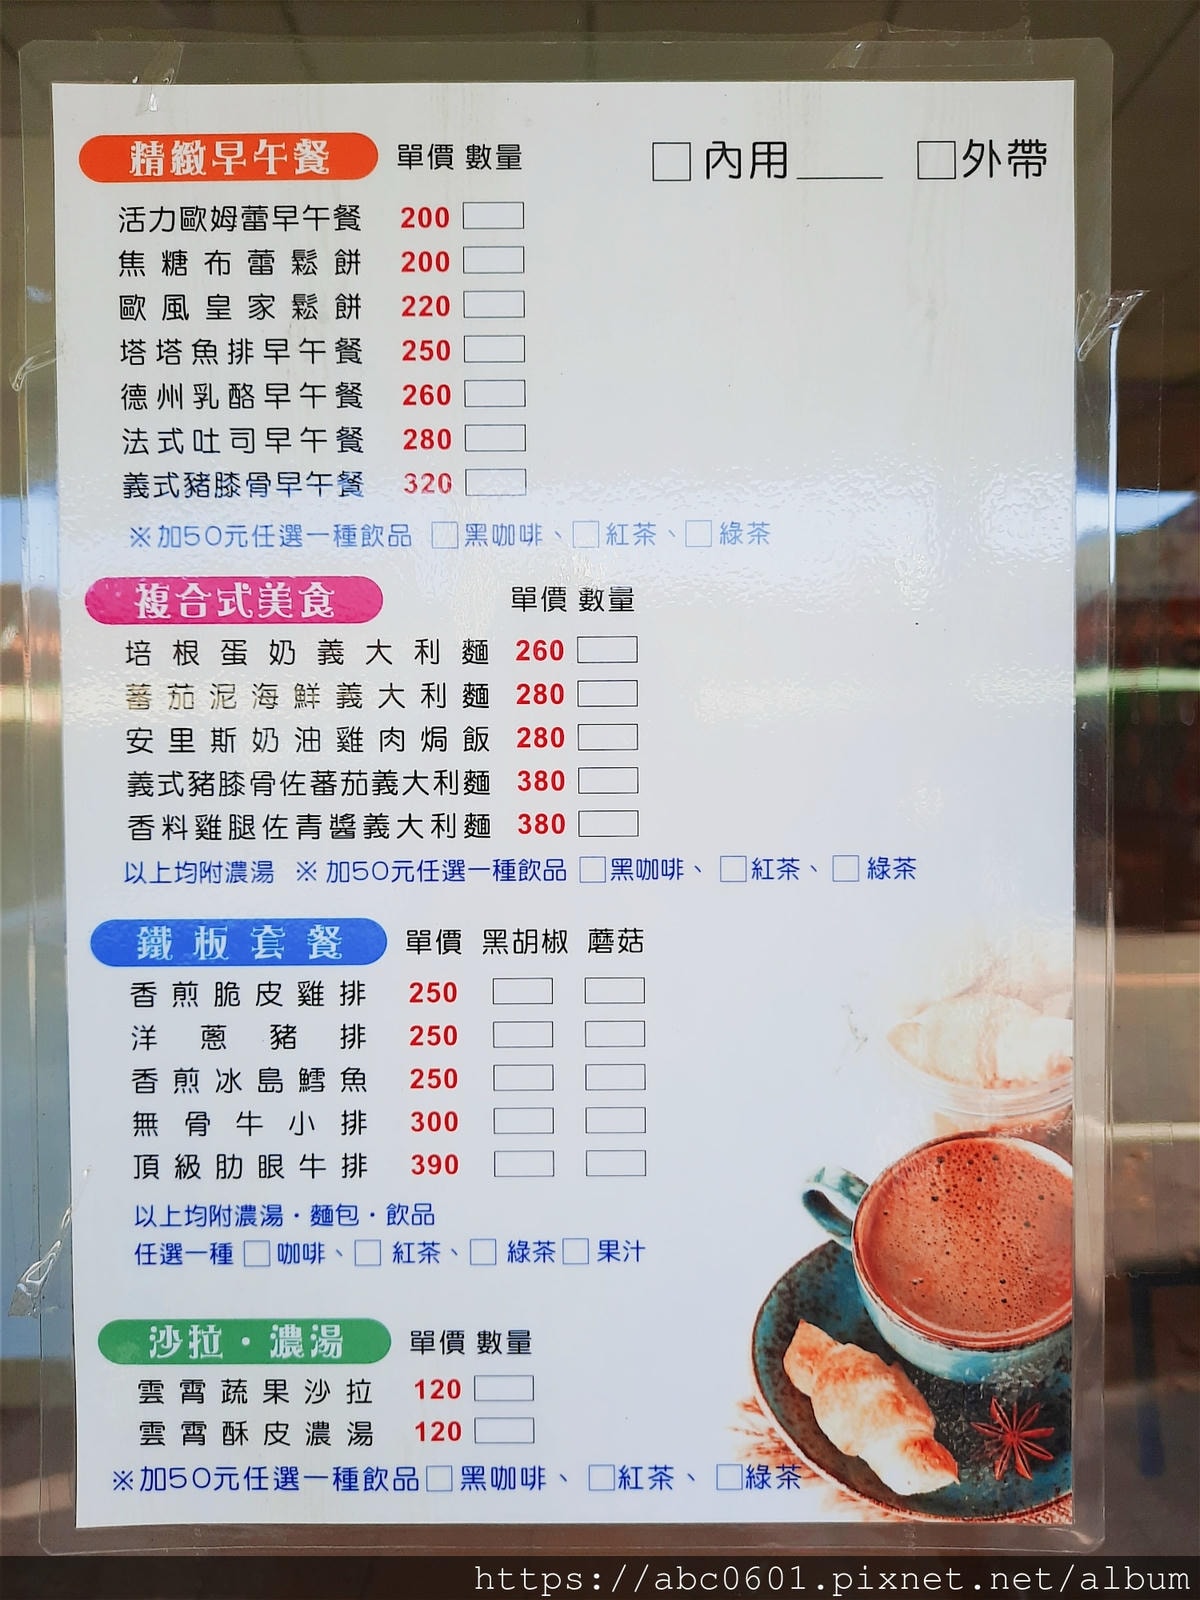 精緻早午餐 單價 數量 □內用____ □外帶
活力歐姆蕾早午餐 200
焦糖布蕾鬆餅 200
歐風皇家鬆餅 220
塔塔魚排早午餐 250
德州乳酪早午餐 260
法式吐司早午餐 280
義式豬膝骨早午餐 320
※加50元任選一種飲品 □黑咖啡、□紅茶、□綠茶
複合式美食 單價 數量
培根蛋奶義大利麵 260
蕃茄泥海鮮義大利麵 280
安里斯奶油雞肉焗飯 280
義式豬膝骨佐蕃茄義大利麵 380
香料雞腿佐青醬義大利麵 380
以上均附濃湯 ※加50元任選一種飲品 □黑咖啡、□紅茶、□綠茶
鐵板套餐 單價 黑胡椒 蘑菇
香煎脆皮雞排 250
洋蔥豬排 250
香煎冰島鱈魚 250
無骨牛小排 300
頂級肋眼牛排 390
以上均附濃湯・麵包・飲品
任選一種 □咖啡、□紅茶、□綠茶 □果汁
沙拉・濃湯 單價 數量
雲霄蔬果沙拉 120
雲霄酥皮濃湯 120
※加50元任選一種飲品 □黑咖啡、□紅茶、□綠茶
https://abc0601.pixnet.net/album